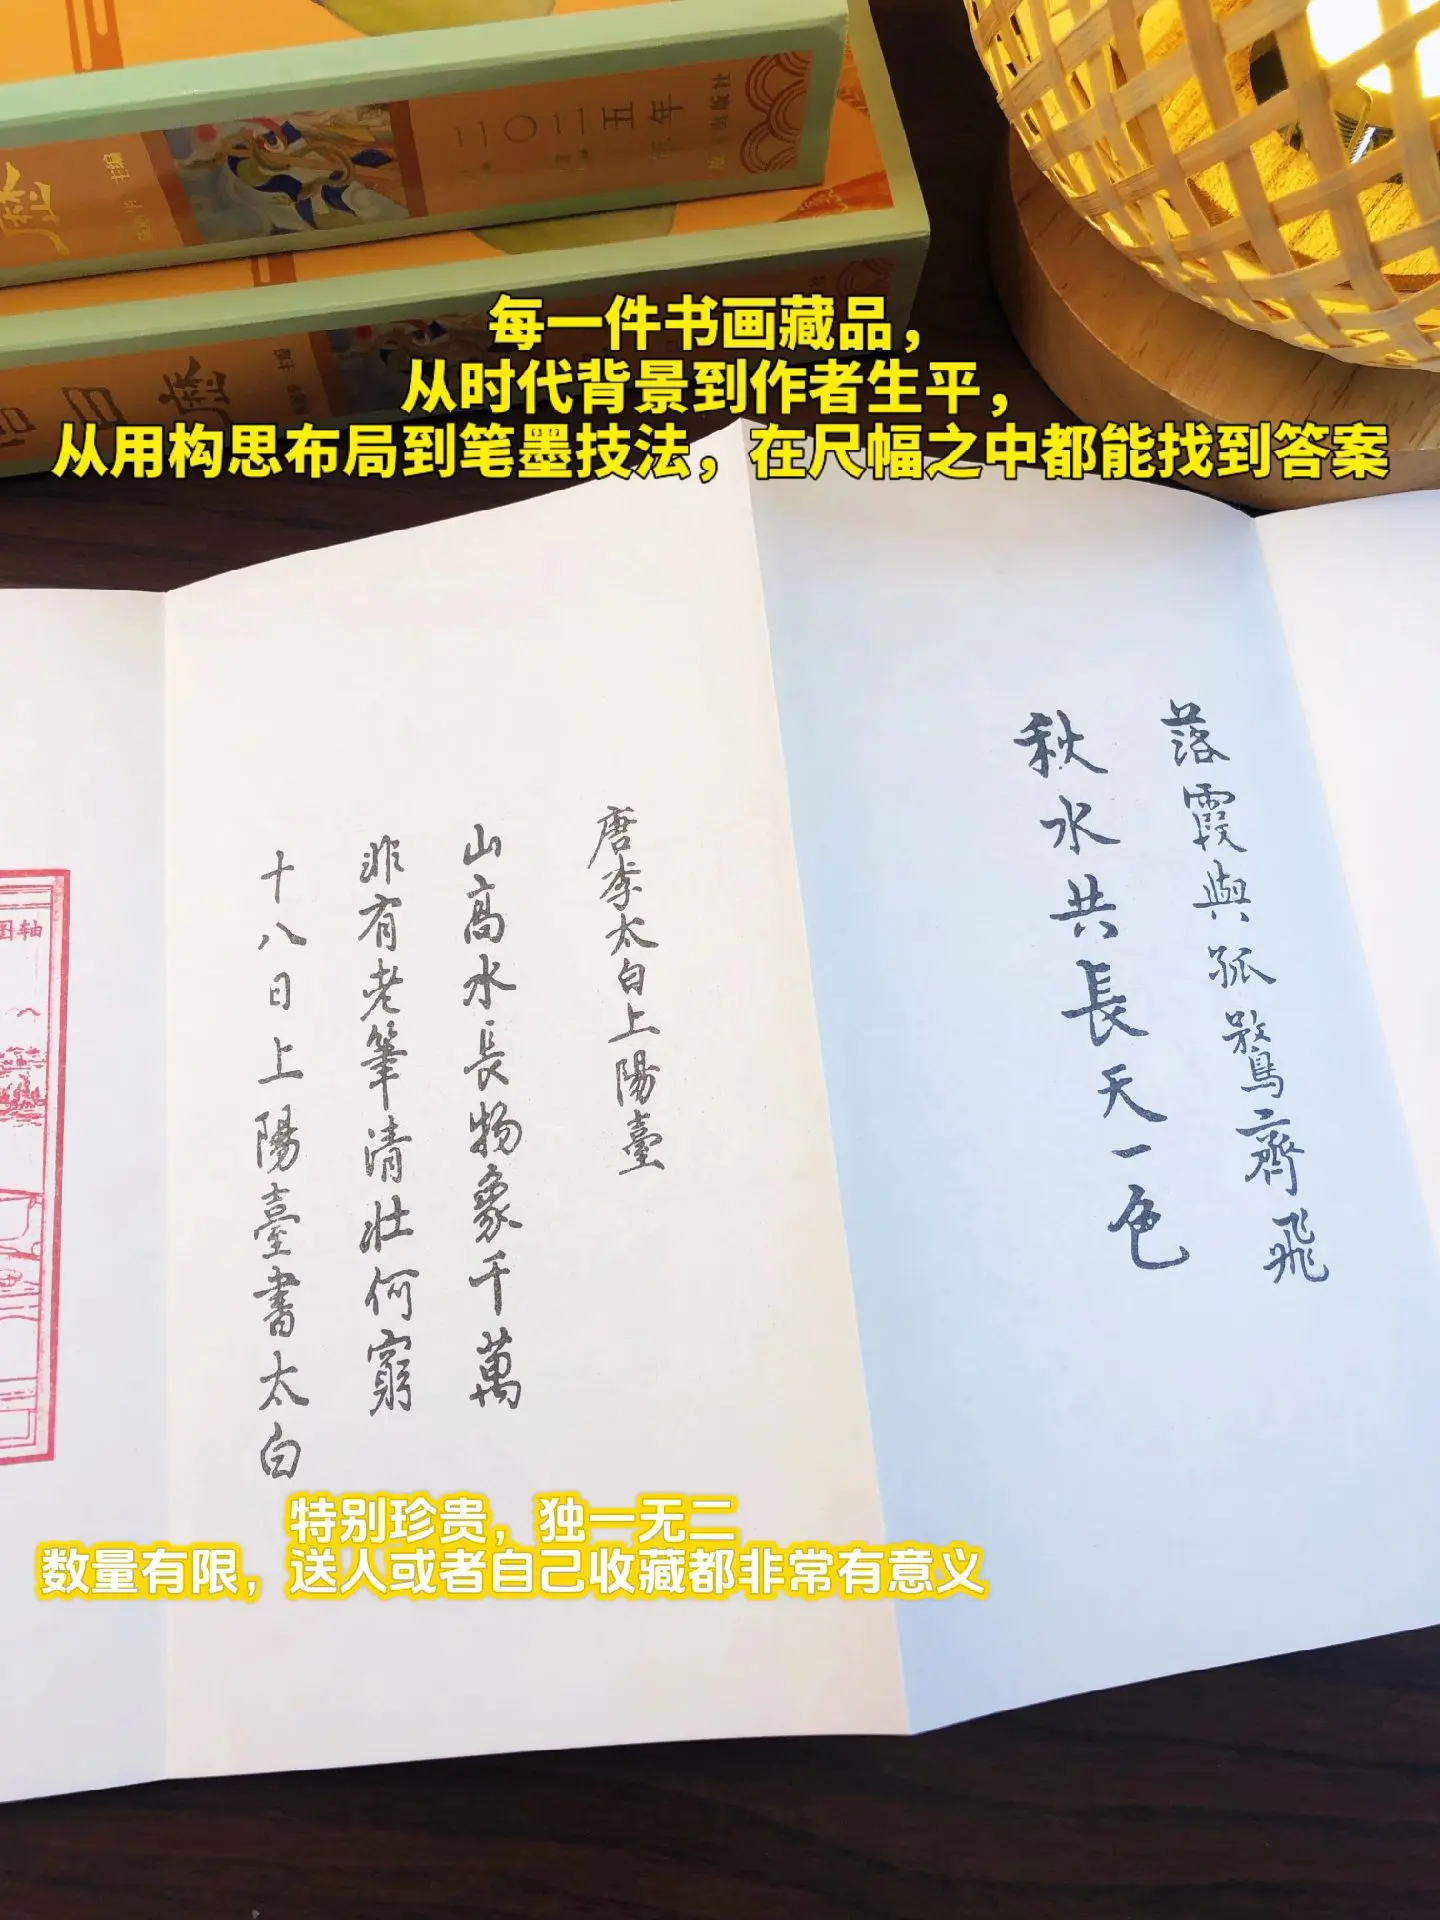 二〇二五年
出版社
每一件书画藏品，
从时代背景到作者生平，
从用构思布局到笔墨技法，在尺幅之中都能找到答案
日歷
落霞與孤鶩齊飛
秋水共長天一色
唐李太白上陽臺
山高水長物象千萬
非有老筆清壯何窮
十八日上陽臺書太白
图轴
特别珍贵，独一无二
数量有限，送人或者自己收藏都非常有意义